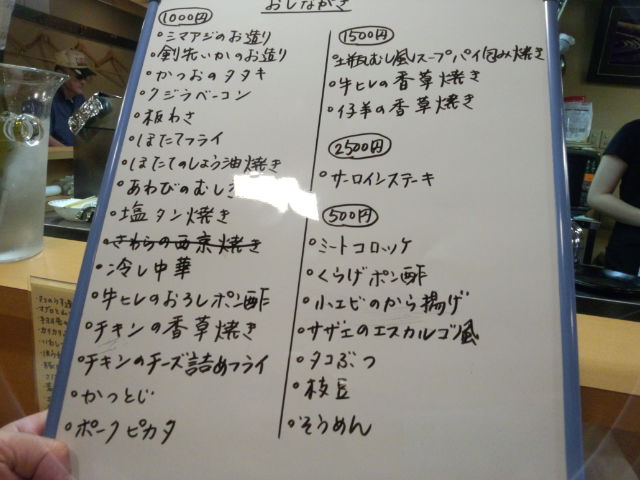 おしながき
1000円
・シマアジのお造り
・剣先いかのお造り
・かつおのタタキ
・クジラベーコン
・板わさ
・ほたてフライ
・ほたてのしょう油焼き
・あわびのむし
・塩タン焼き
・さわらの西京焼き
・冷し中華
・牛ヒレのおろしポン酢
・チキンの香草焼き
・チキンのチーズ詰めフライ
・かつとじ
・ポークピカタ
1500円
・土瓶むし風スープパイ包み焼き
・牛ヒレの香草焼き
・仔羊の香草焼き
2500円
・サーロインステーキ
500円
・ミートコロッケ
・くらげポン酢
・小エビのから揚げ
・サザエのエスカルゴ風
・タコぶつ
・枝豆
・そうめん